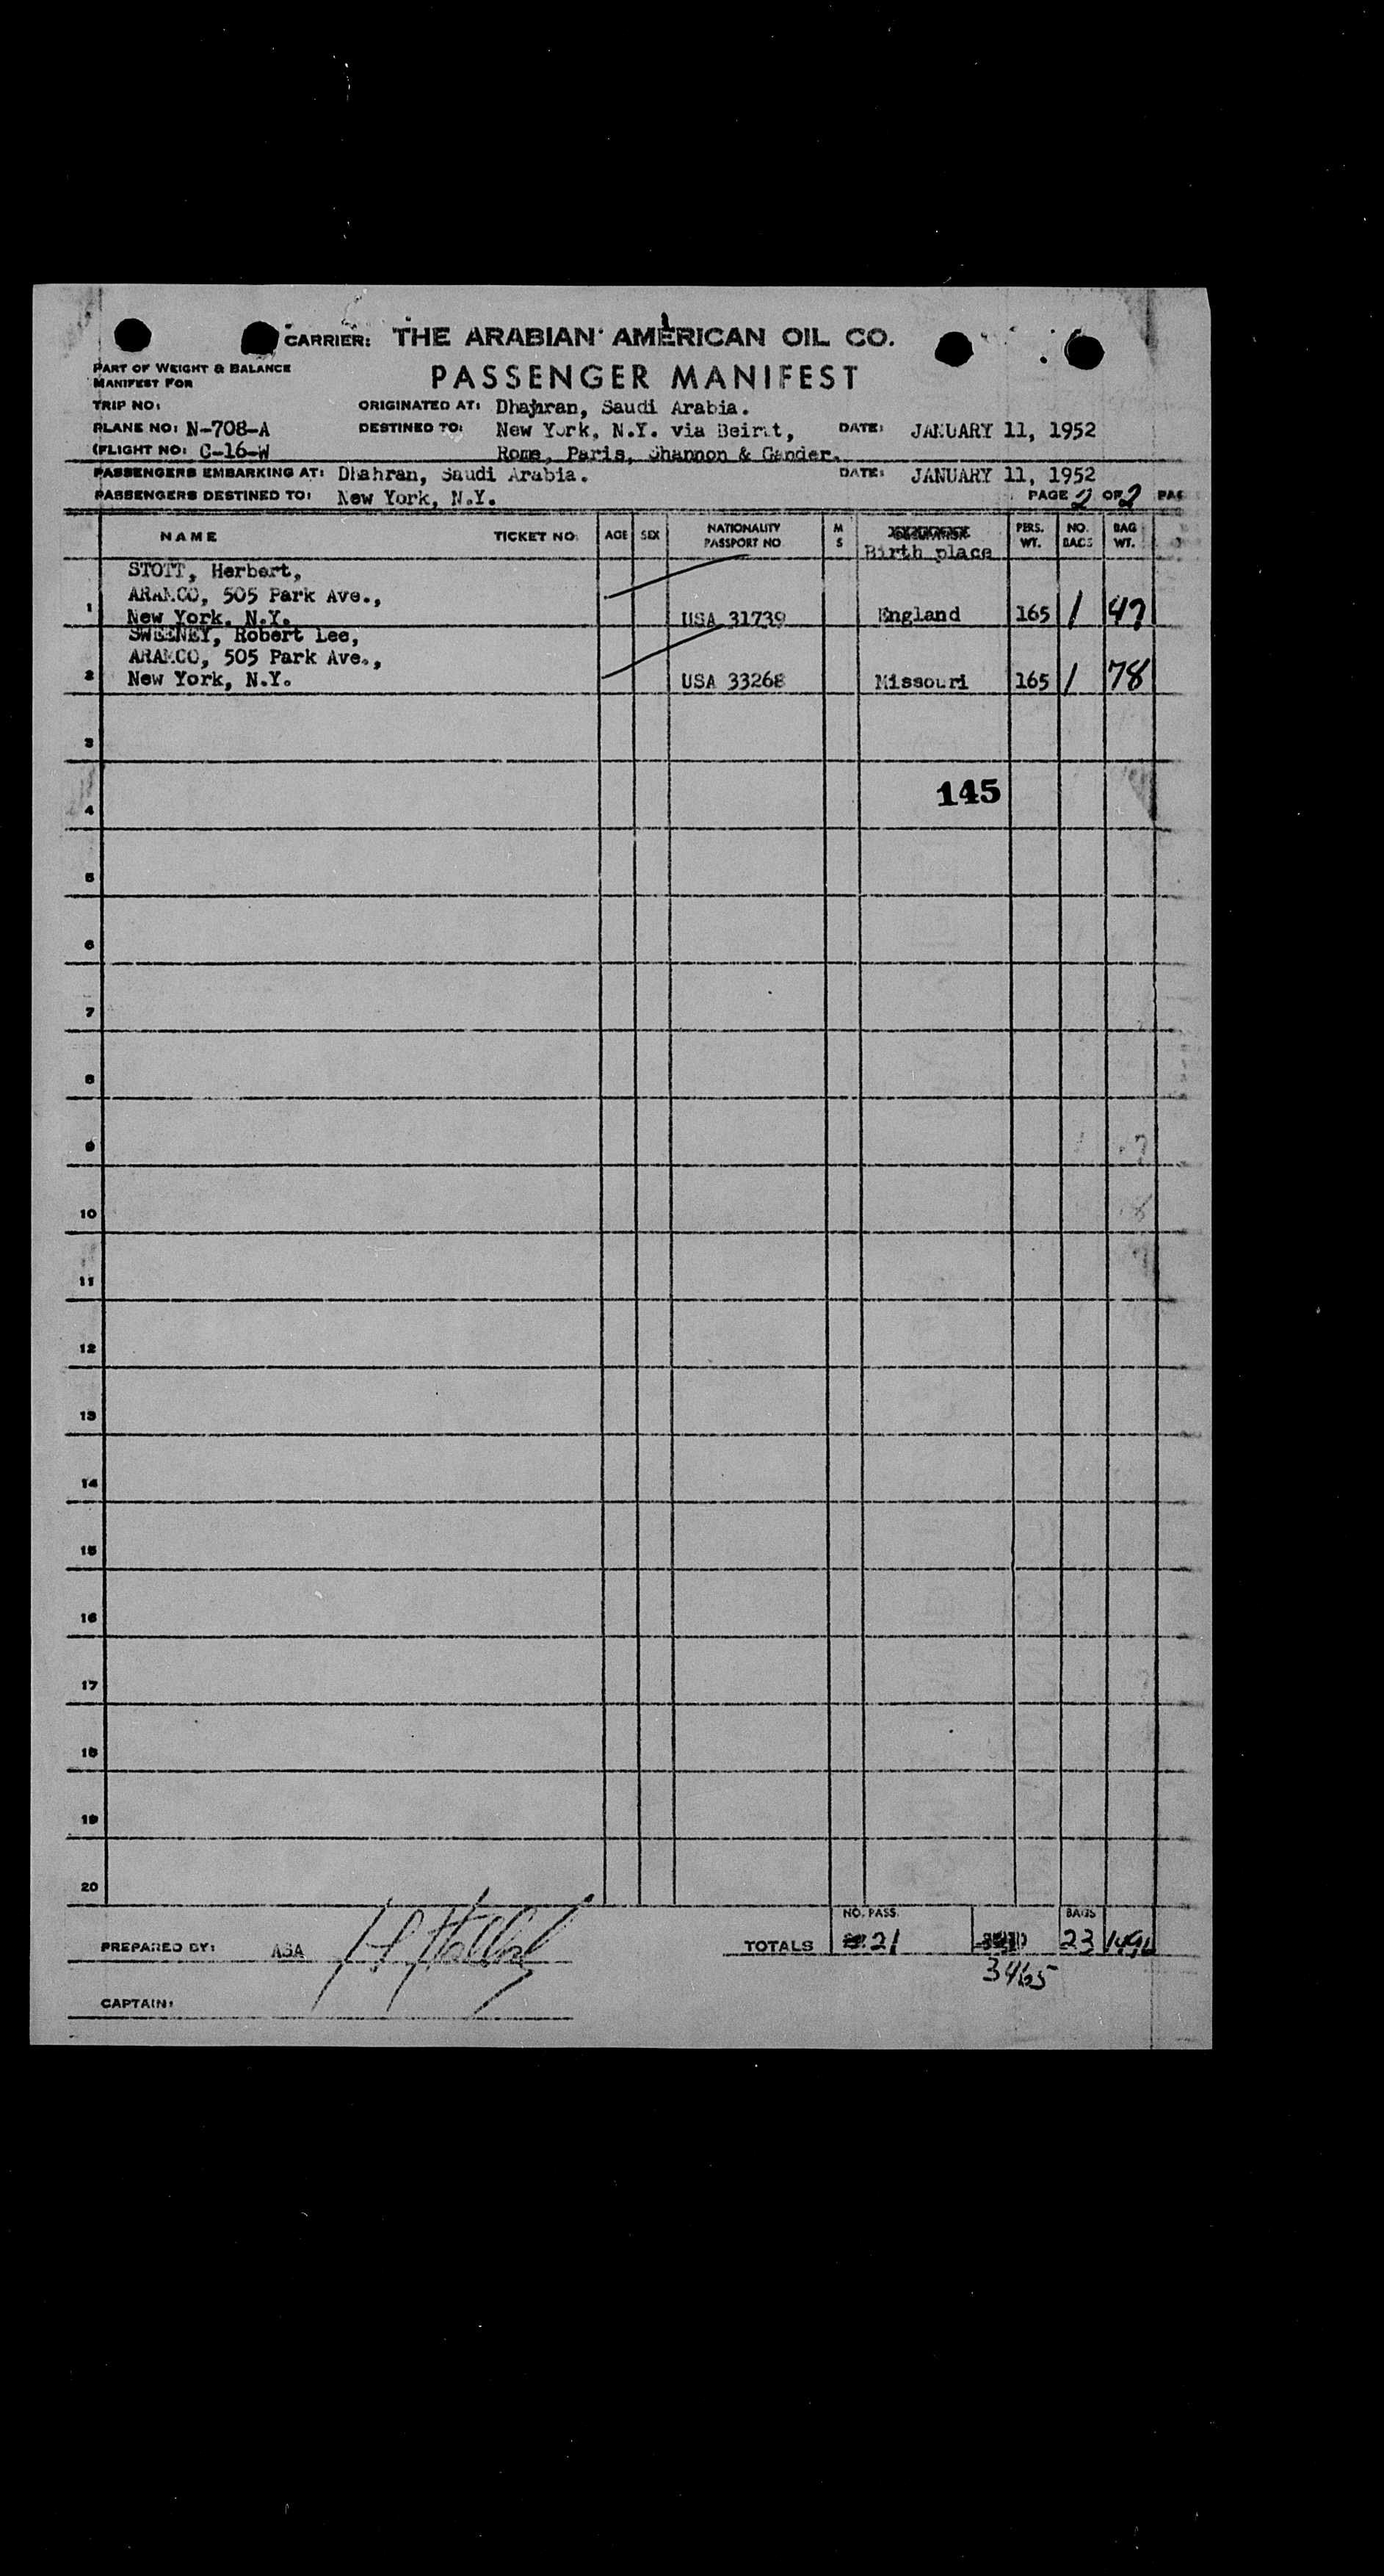 CARRIER: THE ARABIAN AMERICAN OIL CO.
PART OF WEIGHT & BALANCE
MANIFEST FOR
PASSENGER MANIFEST
TRIP NO:
ORIGINATED AT: Dhahran, Saudi Arabia.
PLANE NO: N-708-A
DESTINED TO: New York, N.Y. via Beirut,
DATE: JANUARY 11, 1952
(FLIGHT NO: C-16-W
Rome, Paris, Shannon & Gander.
PASSENGERS EMBARKING AT: Dhahran, Saudi Arabia.
DATE: JANUARY 11, 1952
PASSENGERS DESTINED TO: New York, N.Y.
PAGE 2 OF 2 PAG
NAME TICKET NO. AGE SEX NATIONALITY PASSPORT NO M S Birth place PERS. WT. NO. BAGS BAG WT.
STOTT, Herbert,
ARAMCO, 505 Park Ave.,
1 New York, N.Y. USA 31739 England 165 1 47
SWEENEY, Robert Lee,
ARAMCO, 505 Park Ave.,
2 New York, N.Y. USA 33268 Missouri 165 1 78
3
145
4
5
6
7
8
9
10
11
12
13
14
15
16
17
18
19
20
NO. PASS. BAGS
PREPARED BY: ASA TOTALS 21 23
3465
CAPTAIN: